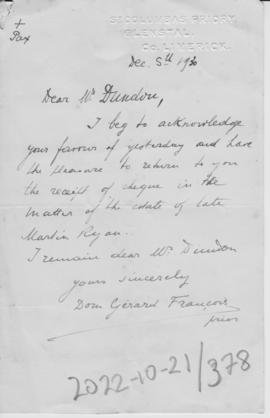 +
Pax
ST COLUMBAS PRIORY,
GLENSTAL,
CO. LIMERICK.
Dec. 5th 1930
Dear Mr Dundon,
I beg to acknowledge
your favour of yesterday and have
the pleasure to return to you
the receipt of cheque in the
matter of the estate of late
Martin Ryan.
I remain dear Mr Dundon
yours sincerely
Dom Gérard François
prior
2022-10-21/378